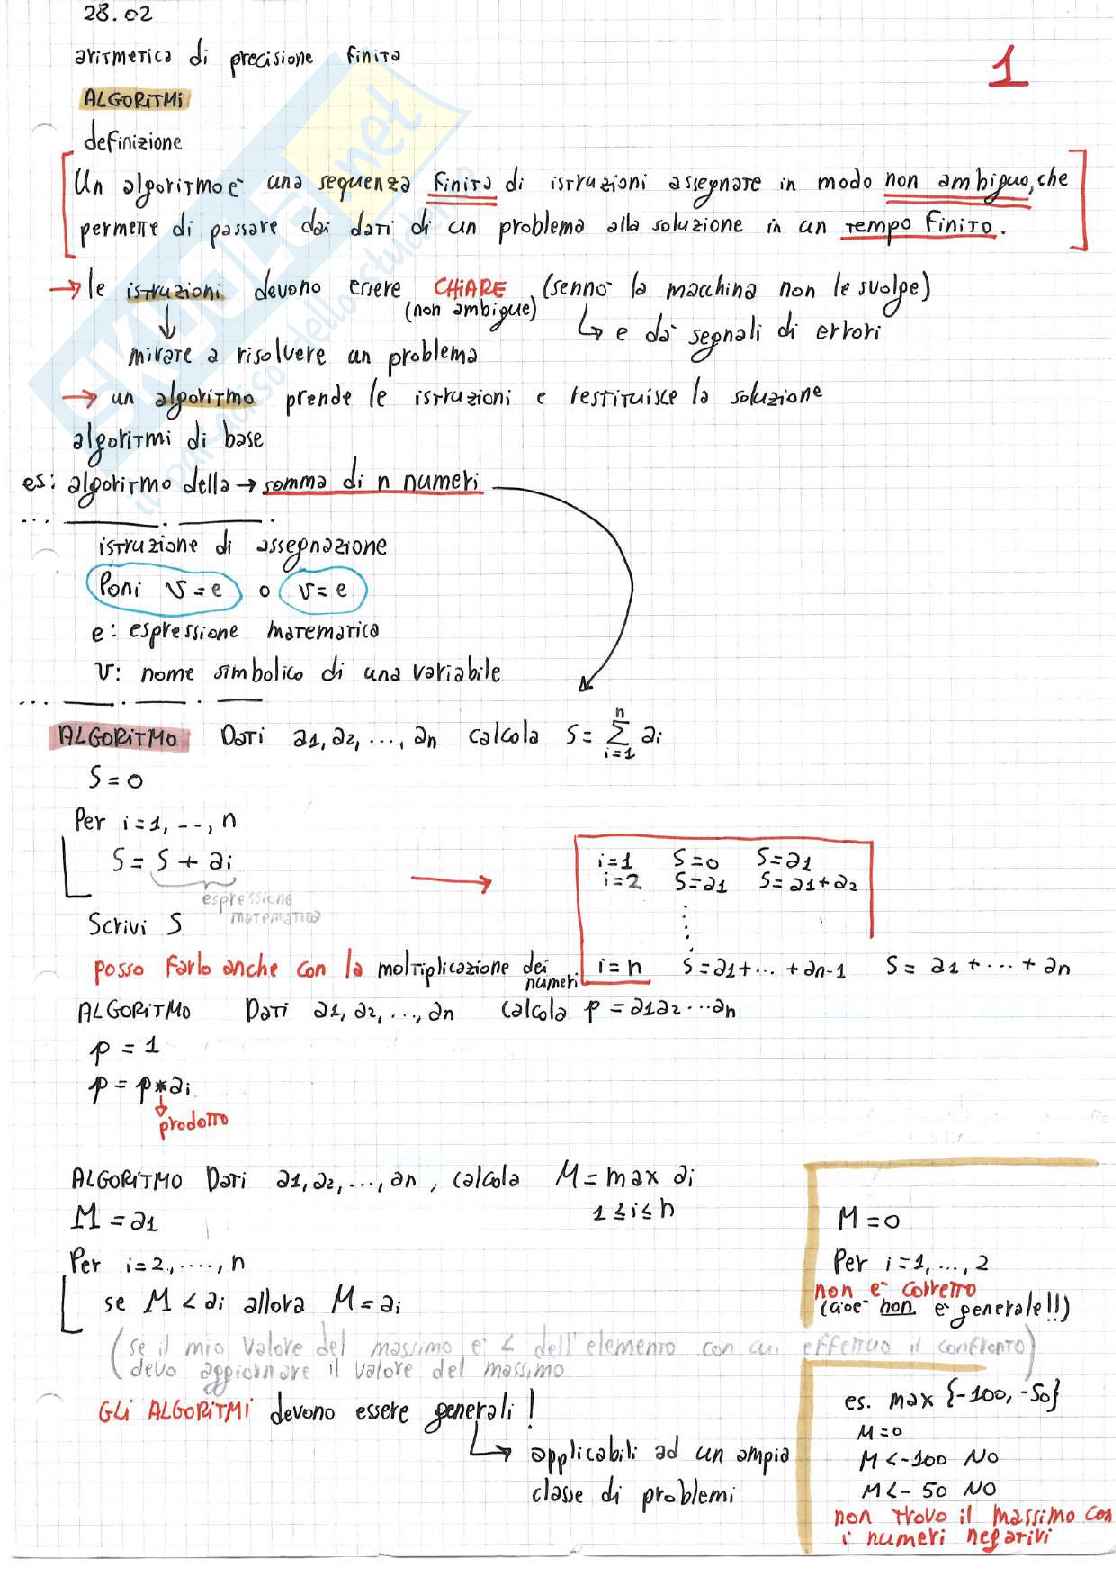 28.02
1
aritmetica di precisione finita
ALGORITMI
definizione
Un algoritmo è una sequenza finita di istruzioni assegnate in modo non ambiguo, che
permette di passare dai dati di un problema alla soluzione in un tempo finito.
→ le istruzioni devono essere CHIARE (sennò la macchina non le svolge)
(non ambigue)
↳ e dà segnali di errori
↓
mirare a risolvere un problema
→ un algoritmo prende le istruzioni e restituisce la soluzione
algoritmi di base
es: algoritmo della → somma di n numeri
istruzione di assegnazione
Poni v = e o v = e
e: espressione matematica
v: nome simbolico di una variabile
ALGORITMO Dati a1, a2, ..., an calcola S = Σ ai
n
i=1
S = 0
Per i=1, --, n
S = S + ai
espressione
matematica
→
i=1 S=0 S=a1
i=2 S=a1 S=a1+a2
⋮
i=n S=a1+...+an-1 S=a1+...+an
Scrivi S
posso farlo anche con la moltiplicazione dei
numeri
ALGORITMO Dati a1, a2, ..., an calcola p = a1a2...an
p = 1
p = p*ai
↓
prodotto
ALGORITMO Dati a1, a2, ..., an, calcola M = max ai
1≤i≤n
M = a1
Per i=2, ...., n
se M < ai allora M = ai
(se il mio valore del massimo è < dell'elemento con cui effettuo il confronto)
devo aggiornare il valore del massimo
GLI ALGORITMI devono essere generali!
↳ applicabili ad un ampia
classe di problemi
M = 0
Per i=1, ..., 2
non è corretto
(cioè non è generale!!)
es. max {-100, -50}
M=0
M<-100 NO
M<-50 NO
non trovo il massimo con
i numeri negativi